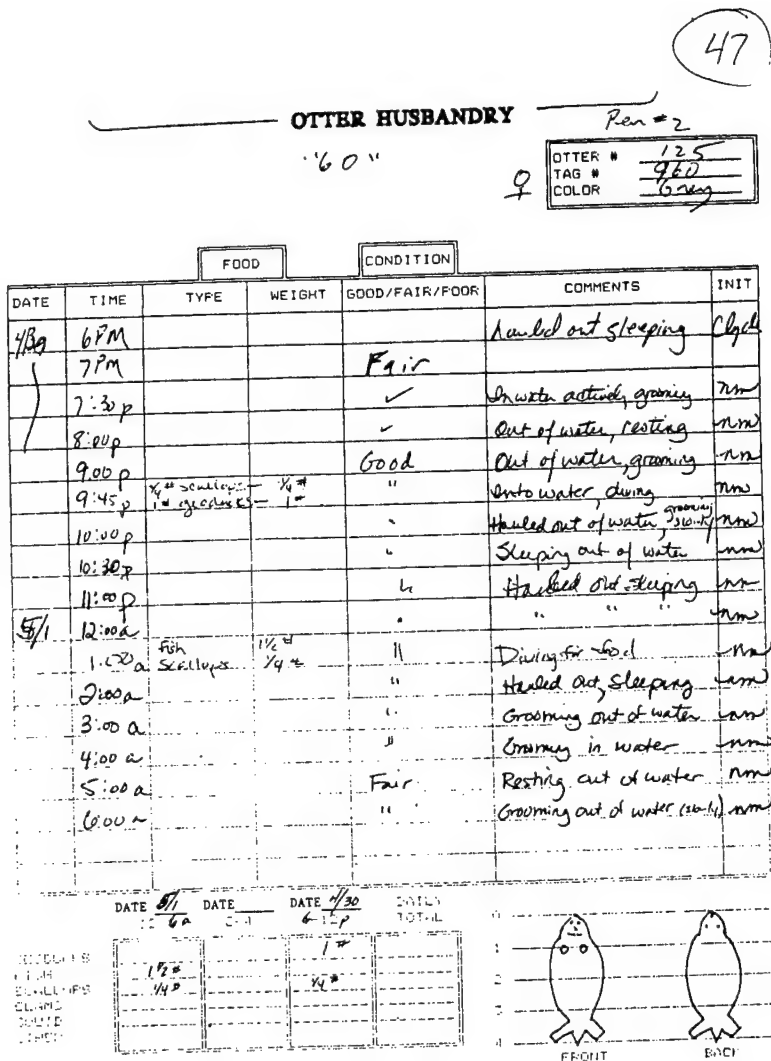 47
OTTER HUSBANDRY
Pen #2
"60"
♀
OTTER # 125
TAG # 960
COLOR Grey
FOOD CONDITION
DATE TIME TYPE WEIGHT GOOD/FAIR/POOR COMMENTS INIT
6PM hauled out sleeping Clyde
7PM Fair
7:30 p ✓ In water actively grooming nm
8:00 p ✓ Out of water, resting nm
9:00 p Good Out of water, grooming nm
9:45 p 1/4 # scallops — 1/4 # " Into water, diving nm
1 # — 1 #
10:00 p " Hauled out of water, grooming slowly nm
10:30 p " Sleeping out of water nm
11:00 p " Hauled out sleeping nm
5/1 12:00 a " " " " nm
1:00 a Fish 1 1/2 # " Diving for food nm
Scallops 1/4 #
2:00 a " Hauled out, sleeping nm
3:00 a " Grooming out of water nm
4:00 a " Grooming in water nm
5:00 a Fair Resting out of water nm
6:00 a " Grooming out of water nm
DATE 5/1 DATE DATE 4/30 DAILY
6a 6-12p TOTAL
1 #
FISH 1 1/2 #
SCALLOPS 1/4 # 1/4 #
CLAMS
SQUID
0
1
2
3
4
FRONT BACK